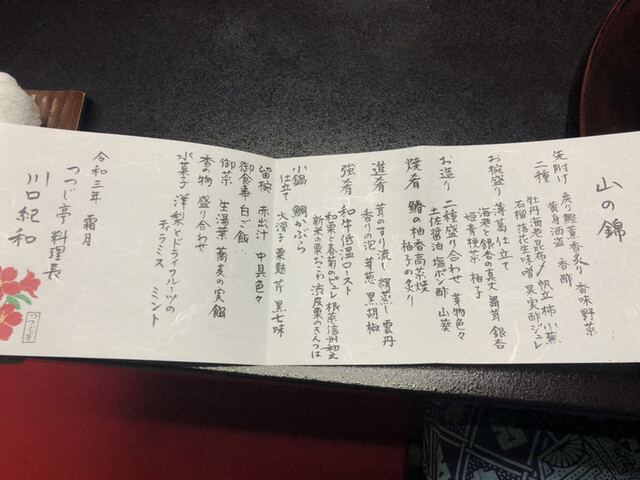 山の錦
先附け 戻り鰹藁香炙り 香味野菜
二種 黄身酒盗 香酢
牡丹海老昆布〆 帆立柿 小蕪
石榴 落花生味噌 果実酢ジュレ
お椀盛り 薄葛仕立て
海老と銀杏の真丈 舞茸 銀杏
姫青梗菜 柚子
お造り 二種盛り合わせ 芽物色々
土佐醤油 塩ポン酢 山葵
焼肴 鰆の柚香高菜焼
柚子の炙り
進肴 茸のすり流し 鰭蒸し 雲丹
香りの泡 芽葱 黒胡椒
強肴 和牛低温ロースト
和栗と春菊のピュレ 根菜信州和え
新米の栗おこわ 渋皮栗のきんつば
小鍋 鯛かぶら
仕立て 大滑子 粟麩 芹 黒七味
留椀 赤出汁 中具色々
御食事 白ご飯
御菜 生湯葉 蕎麦の実餡
香の物 盛り合わせ
水菓子 洋梨とドライフルーツの
ティラミス ミント
令和三年 霜月
つつじ亭 料理長
川口紀和
つつじ亭